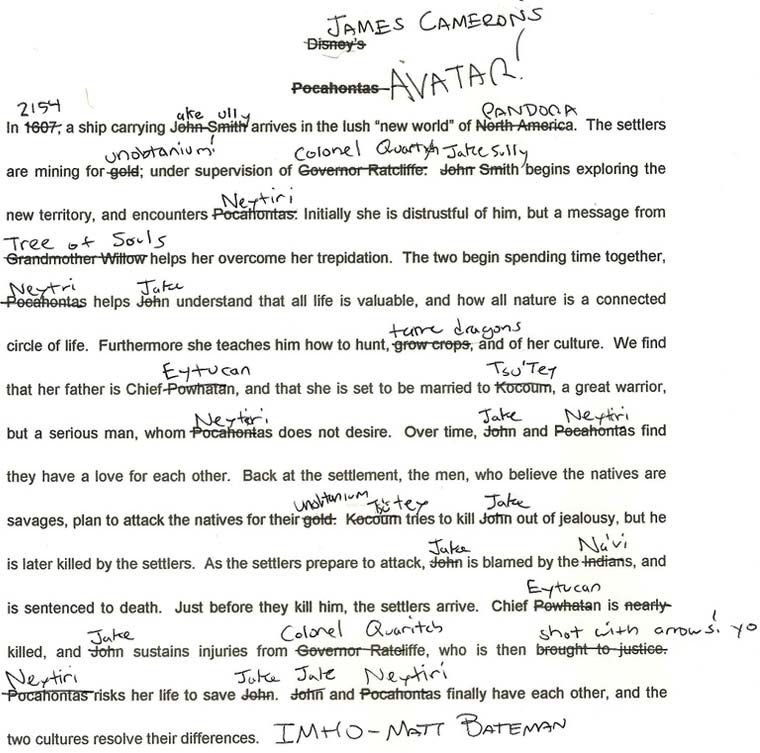 JAMES CAMERON'S
Disney's
Pocahontas AVATAR!
2154 ake ully PANDORA
In 1607, a ship carrying John Smith arrives in the lush "new world" of North America. The settlers
unobtanium! Colonel Quartych Jake Sully
are mining for gold; under supervision of Governor Ratcliffe. John Smith begins exploring the
Neytiri
new territory, and encounters Pocahontas. Initially she is distrustful of him, but a message from
Tree of Souls
Grandmother Willow helps her overcome her trepidation. The two begin spending time together,
Neytri Jake
Pocahontas helps John understand that all life is valuable, and how all nature is a connected
tame dragons
circle of life. Furthermore she teaches him how to hunt, grow crops, and of her culture. We find
Eytucan Tsu'Tey
that her father is Chief Powhatan, and that she is set to be married to Kocoum, a great warrior,
Neytiri Jake Neytiri
but a serious man, whom Pocahontas does not desire. Over time, John and Pocahontas find
they have a love for each other. Back at the settlement, the men, who believe the natives are
unobtanium Tsu'tey Jake
savages, plan to attack the natives for their gold. Kocoum tries to kill John out of jealousy, but he
Jake Na'vi
is later killed by the settlers. As the settlers prepare to attack, John is blamed by the Indians, and
Eytucan
is sentenced to death. Just before they kill him, the settlers arrive. Chief Powhatan is nearly
Jake Colonel Quaritch shot with arrows! yo
killed, and John sustains injuries from Governor Ratcliffe, who is then brought to justice.
Neytiri Jake Jake Neytiri
Pocahontas risks her life to save John. John and Pocahontas finally have each other, and the
two cultures resolve their differences. IMHO - MATT BATEMAN